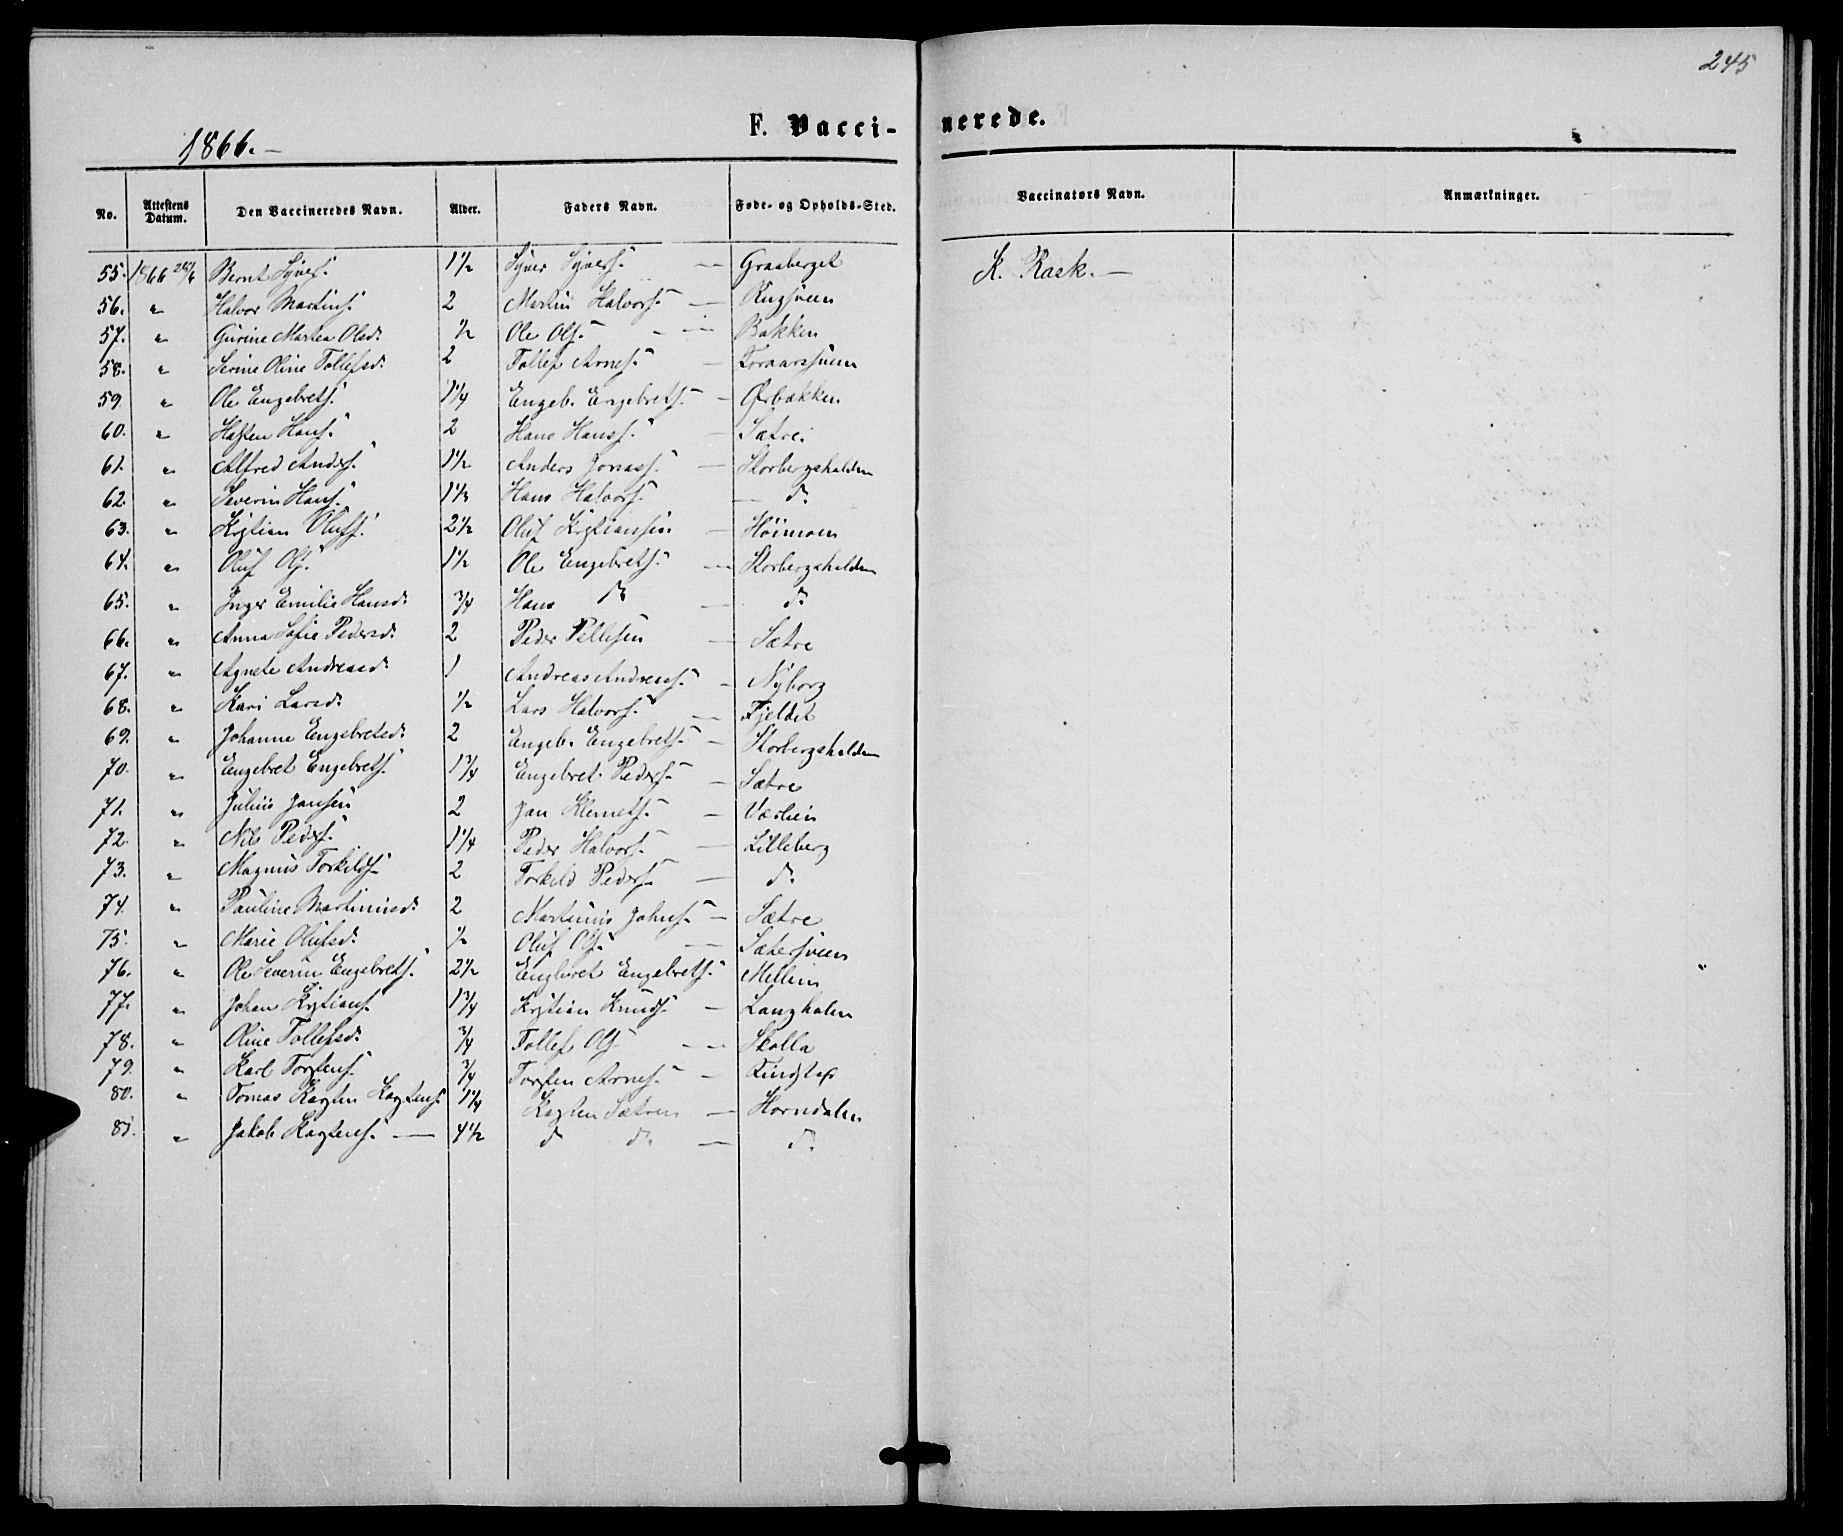 245
F. Vaccinerede.
1866.
No. Attestens Datum. Den Vaccineredes Navn. Alder. Faders Navn. Føde- og Opholds-Sted. Vaccinators Navn. Anmærkninger.
55. 1866 Bernt Syvers. 1½ Syver Syvers. — Graaberget K. Rask. —
56. " Halvor Martins. 2 Martin Halvors. —
57. " Gurine Martea Olsd. ½ Ole Ols. — Bakken
58. " Serine Oline Tollefsd. 2 Tollef Arnes. —
59. " Ole Engebrets. 1¼ Engeb. Engebrets. — Ørbakken
60. " Hans. 2 Hans Hanss. — Sætre
61. " Alfred Anders. 1½ Anders Jonass. — Storbergshalden
62. " Severin Hans. 1⅓ Hans Halvors. — d.
63. " Kristian Olufs. 2½ Oluf Kristianssen — Høimoen
64. " Oluf Ols. 1½ Ole Engebrets. — Storbergshalden
65. " Inger Emilie Hansd. ¾ Hans d. — d.
66. " Anna Sofie Pedersd. 2 Peder — Sætre
67. " Agnete Andreasd. 1 Andreas Andreas. — Nyborg
68. " Kari Larsd. ½ Lars Halvors. — Fjeldet
69. " Johanne Engebretsd. 2 Engeb. Engebrets. — Storbergshalden
70. " Engebret Engebrets. 1¾ Engebret Peders. — Sætre
71. " Julius Jansen 2 Jan Klemets. — Værlien
72. " Nils Peders. 1¼ Peder Halvors. — Lilleberg
73. " Magnus Torkilds. 2 Torkild Peders. — d.
74. " Pauline Martinusd. 2 Martinus Johns. — Sætre
75. " Marie Olufsd. ½ Oluf Ols. — Sætersveen
76. " Ole Severin Engebrets. 2½ Engebret Engebrets. Mellem
77. " Johan Kristians. 1¾ Kristian Knuds. — Langholen
78. " Oline Tollefsd. ¾ Tollef Ols. — Skolla
79. " Karl Torstens. ¾ Torsten Arnes. —
80. " Tomas Karsten Karstens. 1¼ Karsten Sætren — Horndalen
81. " Jakob Karstens. — 4½ d d. — d.